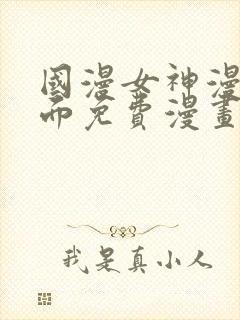 國漫女神漫
而免費漫畫
我是真小人